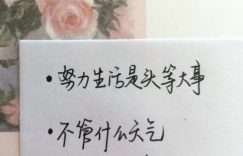 •努力生活是头等大事
•不管什么天气